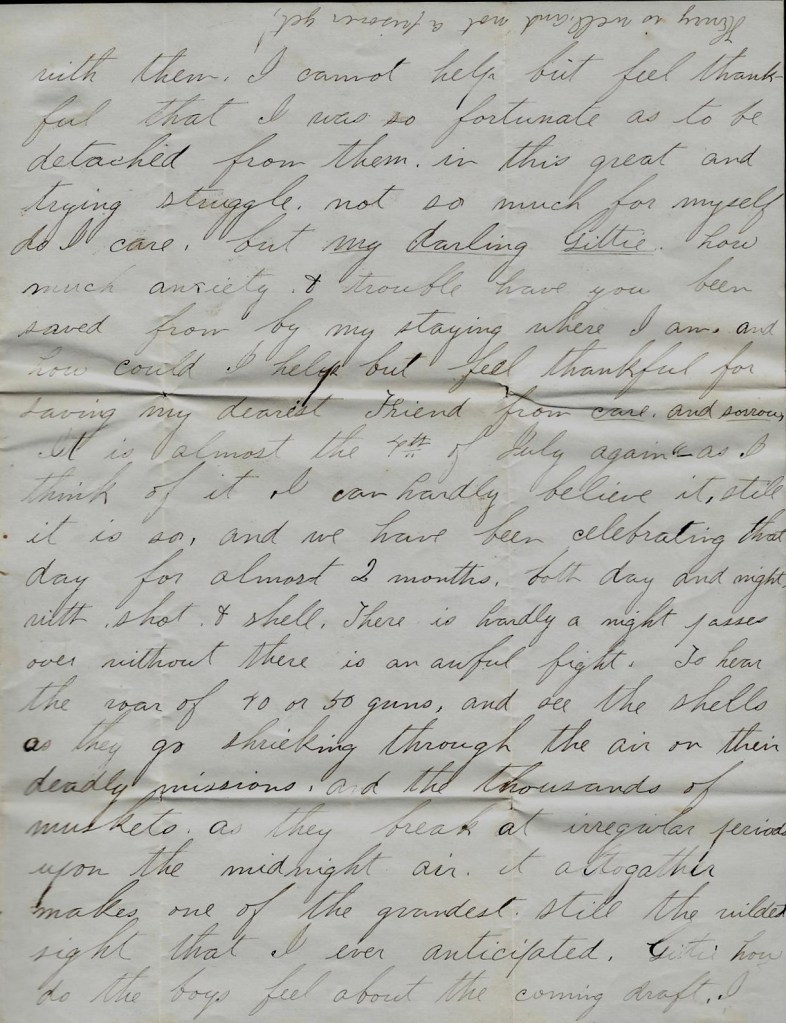 Henry is well and not a prisoner yet!
with them. I cannot help but feel thank-
ful that I was so fortunate as to be
detached from them. in this great and
trying struggle. not so much for myself
do I care. but my darling Gittie. how
much anxiety. & trouble have you been
saved from by my staying where I am. and
how could I help but feel thankful for
saving my dearest Friend from care. and sorrow,
It is almost the 4th of July again - as I
think of it I can hardly believe it, still
it is so, and we have been celebrating that
day for almost 2 months, both day and night,
with shot & shell. There is hardly a night passes
over without there is an awful fight. To hear
the roar of 40 or 50 guns, and see the shells
as they go shrieking through the air on their
deadly missions. and the thousands of
muskets. as they break at irregular periods
upon the midnight air. it altogather
makes one of the grandest. still the wildest
sight that I ever anticipated. Gittie how
do the boys feel about the coming draft. I